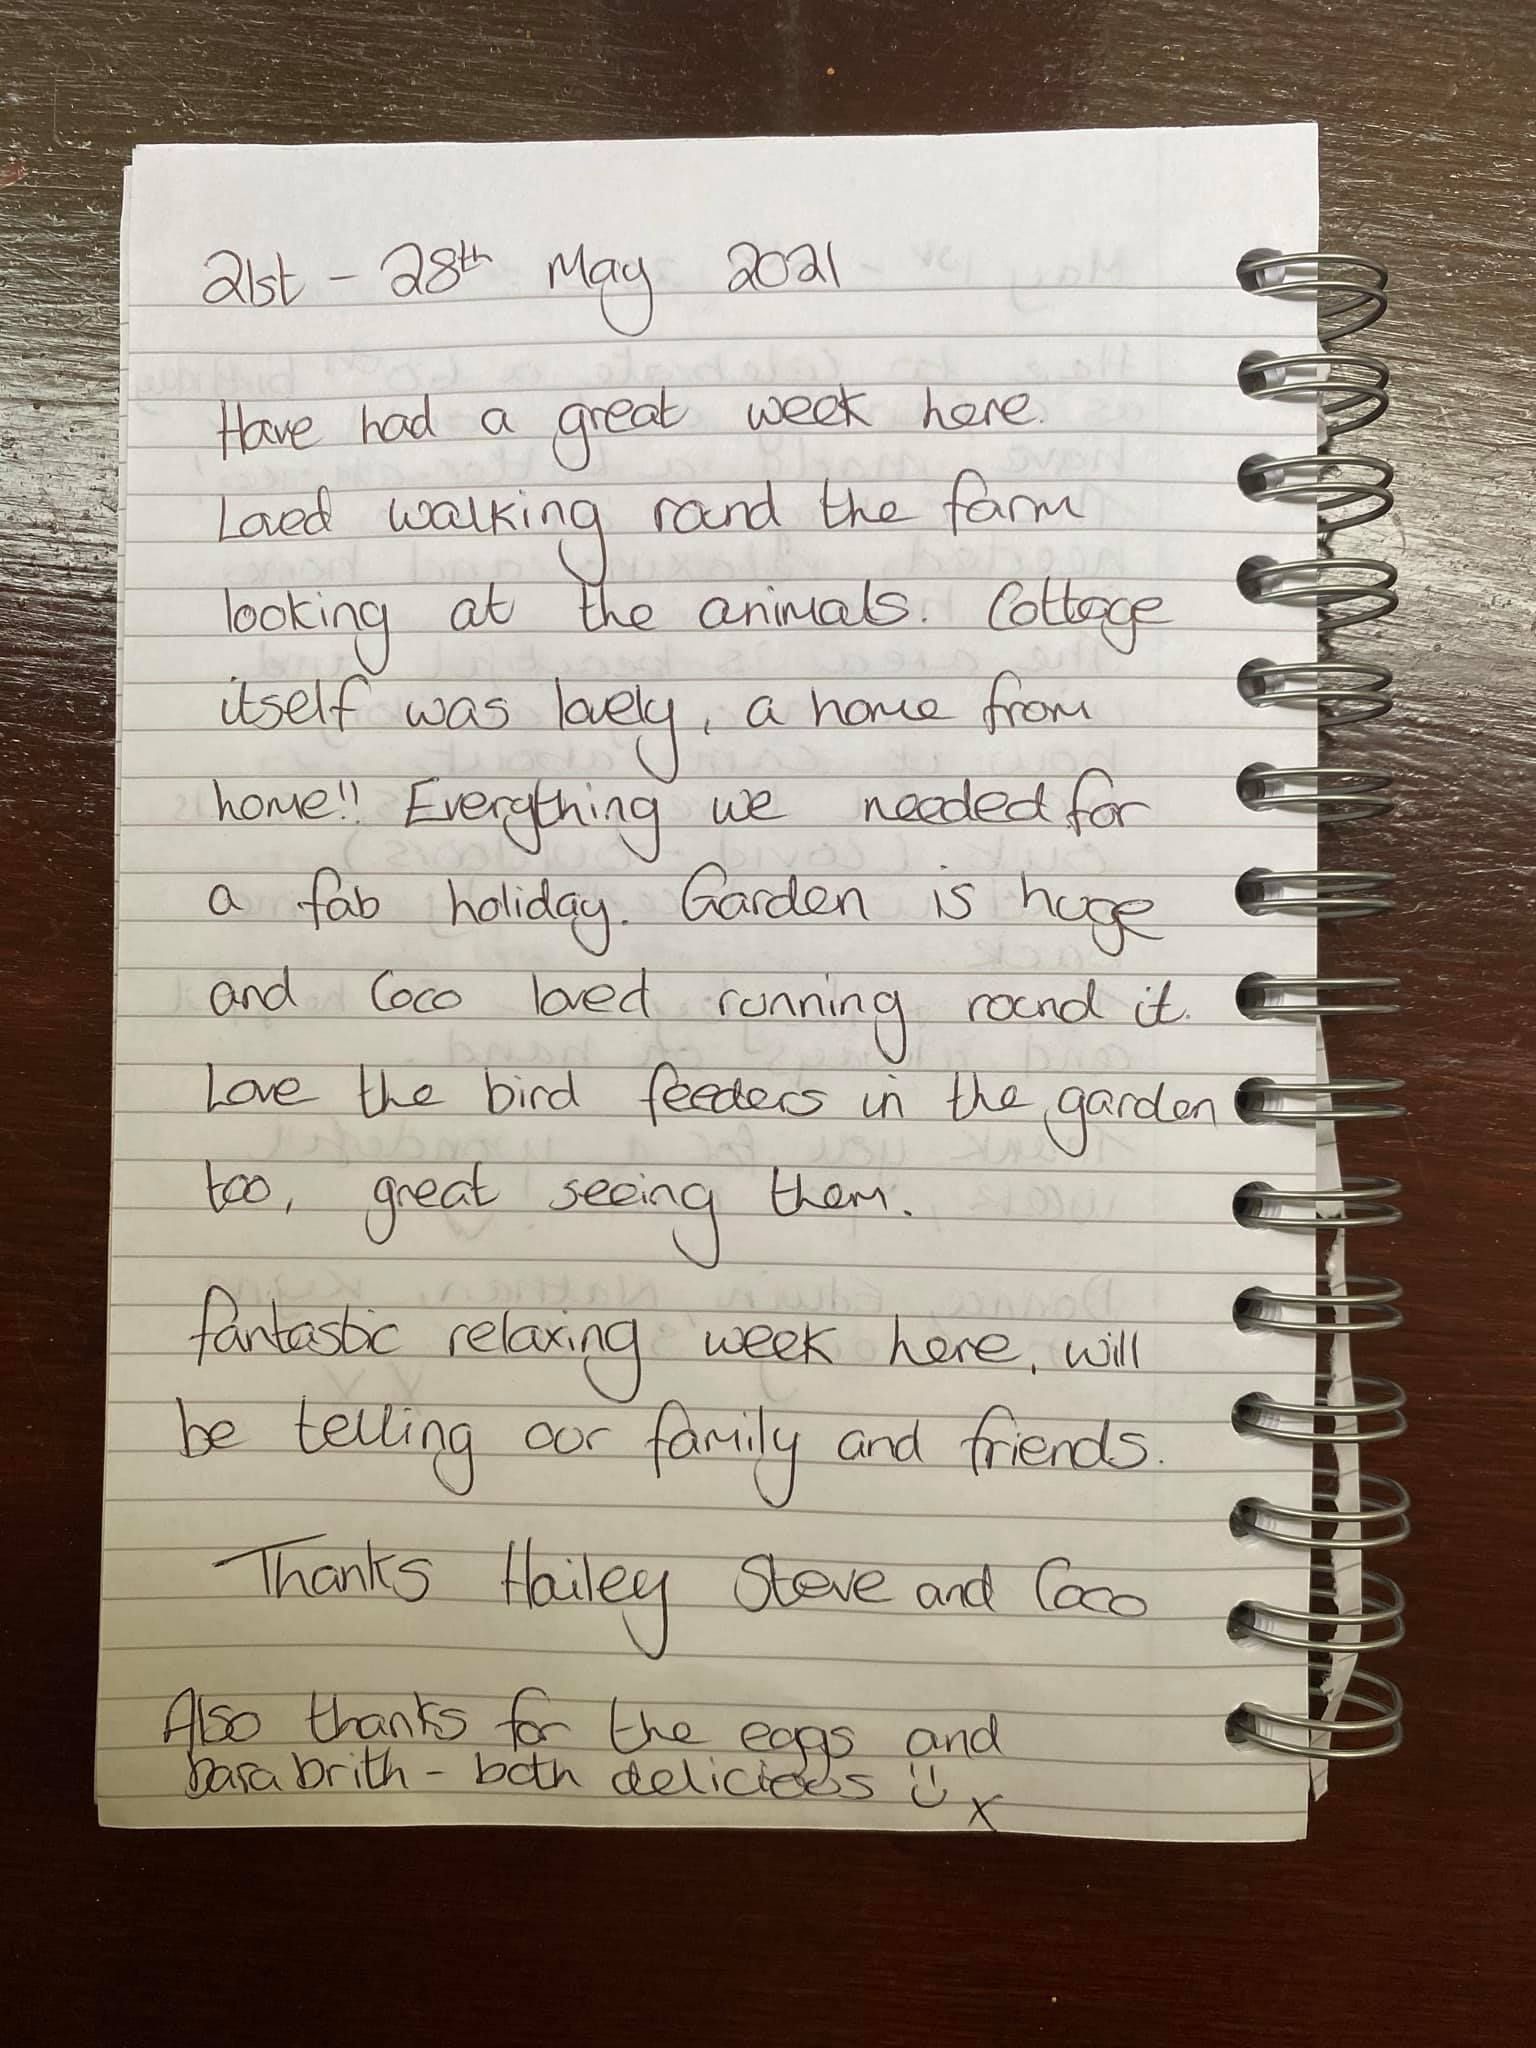 21st - 28th May 2021
Have had a great week here.
Loved walking round the farm
looking at the animals. Cottage
itself was lovely, a home from
home!! Everything we needed for
a fab holiday. Garden is huge
and Coco loved running round it.
Love the bird feeders in the garden
too, great seeing them.
Fantastic relaxing week here, will
be telling our family and friends.
Thanks Hailey Steve and Coco
Also thanks for the eggs and
bara brith - both delicious :) x